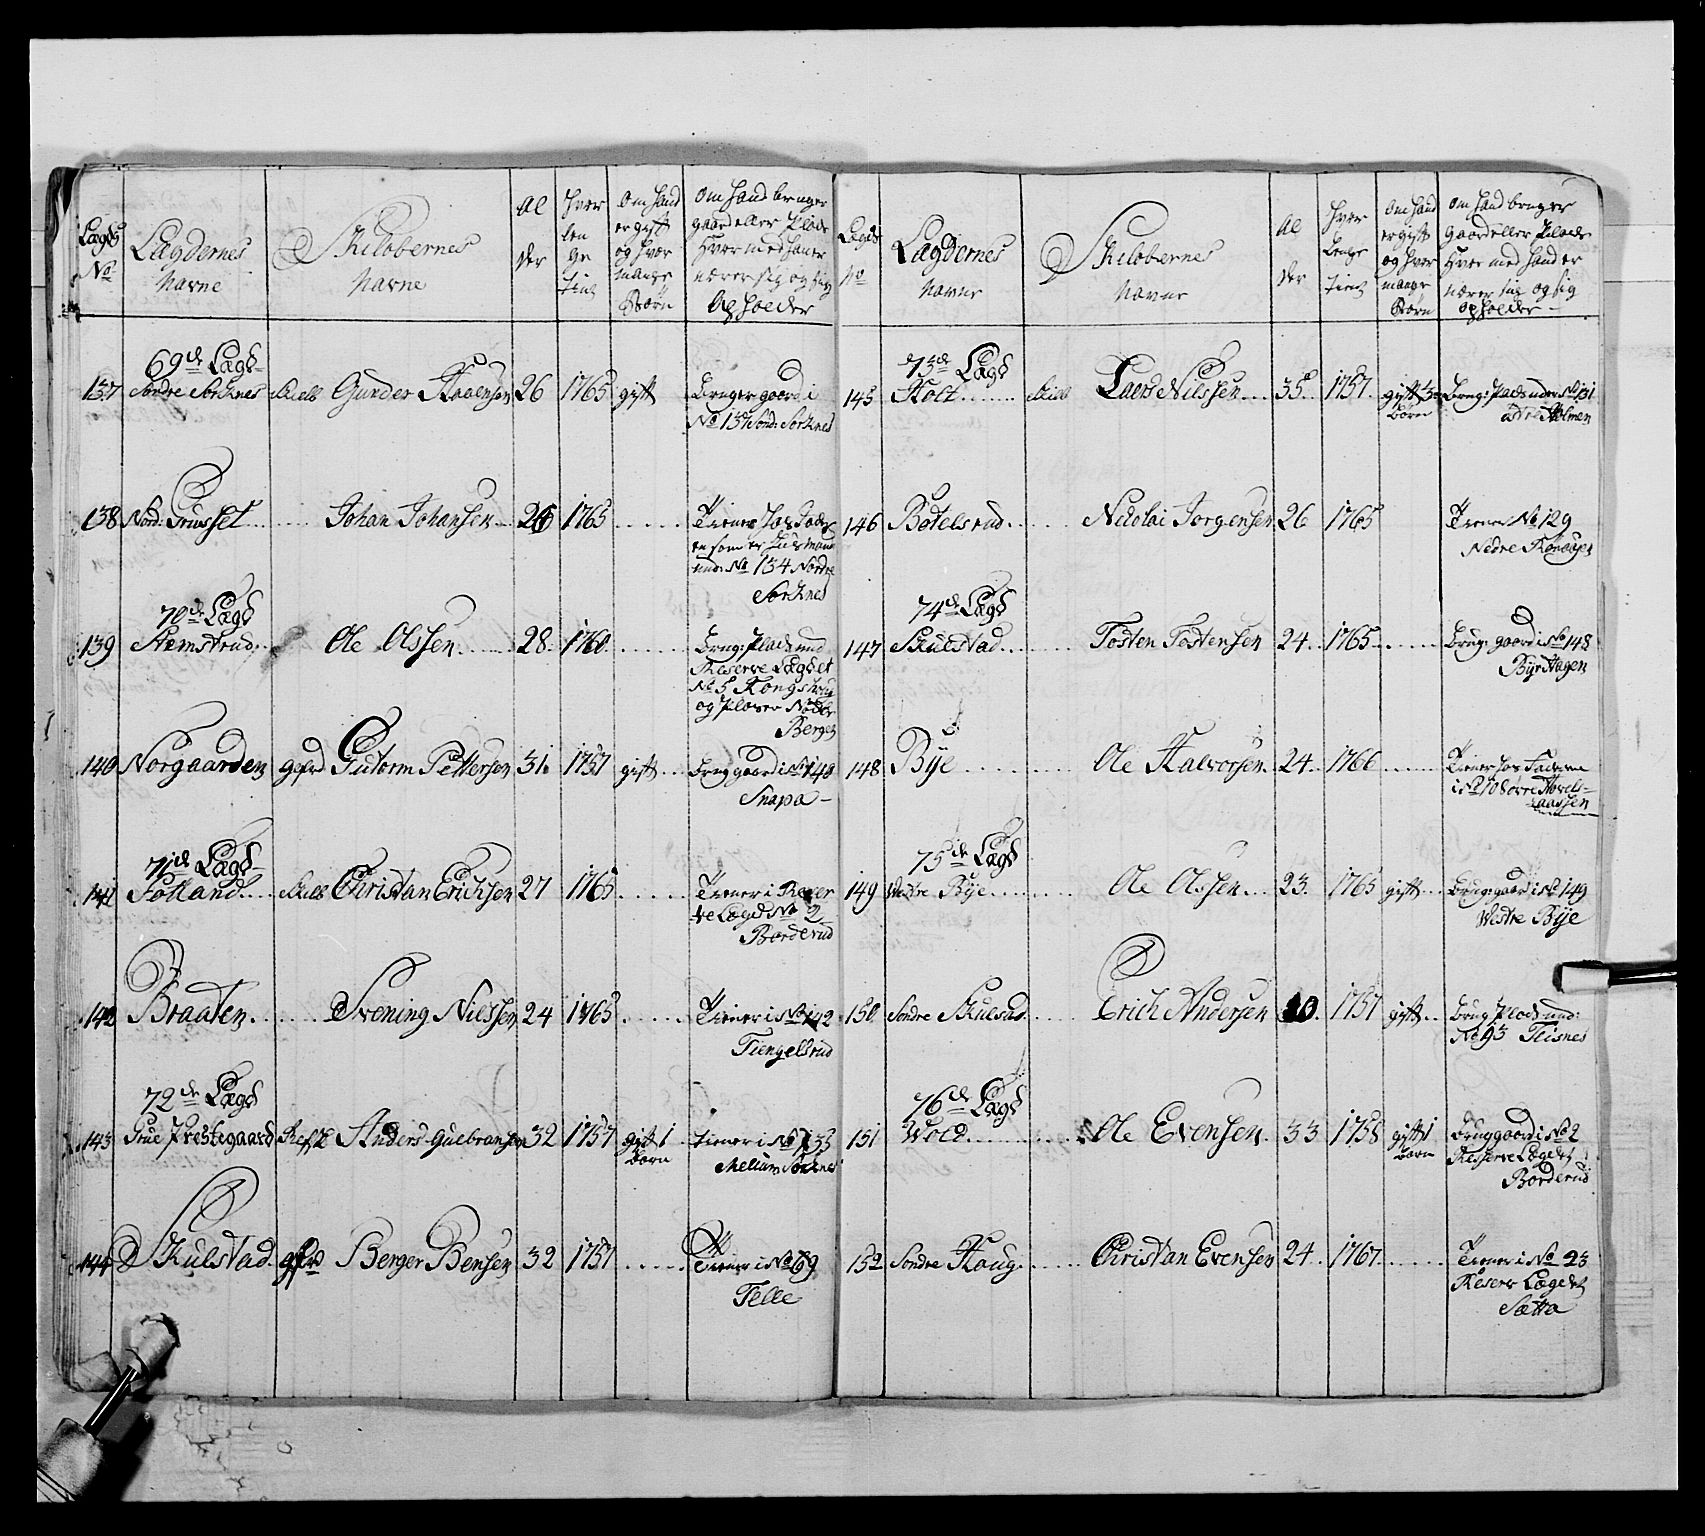 Lægds No
Lægdernes Navne
Skiløbernes Navne
Al der
Hvor len ge tient
Om hand er gift og hvor mange Børn
Om hand bruger gaard eller Plads Hvor med han er nærer sig og sig Opholder
69de Lægd
137 Søndre Sorknes Skiell Gunder 26 1765 gift Bruger gaard i
No 137 Sønd: Sorknes
138 Nord: Grusset Johan Johansen 26 1765 Tiener hos
en som er Husmand
und: No 134 Nordre
Sorknes
70de Lægd
139 Stemsrud Ole Olssen 28 1760 Brug: Plads und
Reserve Lægdet
No 5 Kongshaug
og
Bergen
140 Norgaarden gefrd Gutorm Pettersen 31 1757 gift Brug gaard i No 140
Snapa
71de Lægd
141 Fotland Skiell Christian Erichsen 27 1765 Tiener i Reser
ve Lægd No 2
Borderud
142 Braaten Svening Nilssen 24 1765 Tiener i No 142
Tiengelsrud
72de Lægd
143 Grue Prestegaard Anders Guebransen 32 1757 gift 1 Tiener i No 135
Børn Mellum Sorknes
144 Skulstad gefrd Berger Bensen 32 1757 Tiener i No 69
Telle
Lægds No
Lægdernes Navne
Skiløbernes Navne
Al der
Hvor lenge tient
Om hand er gift og hvor mange Børn
Om hand bruger Gaard eller Plads Hvor med hand er nærer sig og sig opholder
73de Lægd
145 Holt Skiell Lars Nilssen 35 1757 gift 3 Brug: Plads under No 131
Børn Holmen
146 Botelsrud Nicolai Jorgensen 26 1765 Tiener No 129
Nedre
74de Lægd
147 Skulstad Tosten Tostensen 24 1765 Brug: gaard i No 148
Bye Hagen
148 Bye Ole Halvorsen 24 1766 Tiener hos Faderen
i No 70 Søvre
75de Lægd
149 Vestre Bye Ole Olssen 23 1765 gift Brug: gaard i No 149
Westre Bye
150 Søndre Skulsad Erich Andersen 1757 gift Brug Plads und:
No 93 Flisnes
76de Lægd
151 Wold Ole Evensen 33 1758 gift 1 Brug gaard i No 2
Børn Reserve Lægdet
Borderud
152 Søndre Haug Christian Evensen 24 1767 Tiener i No 23
Reserv Lægdet
Sætta